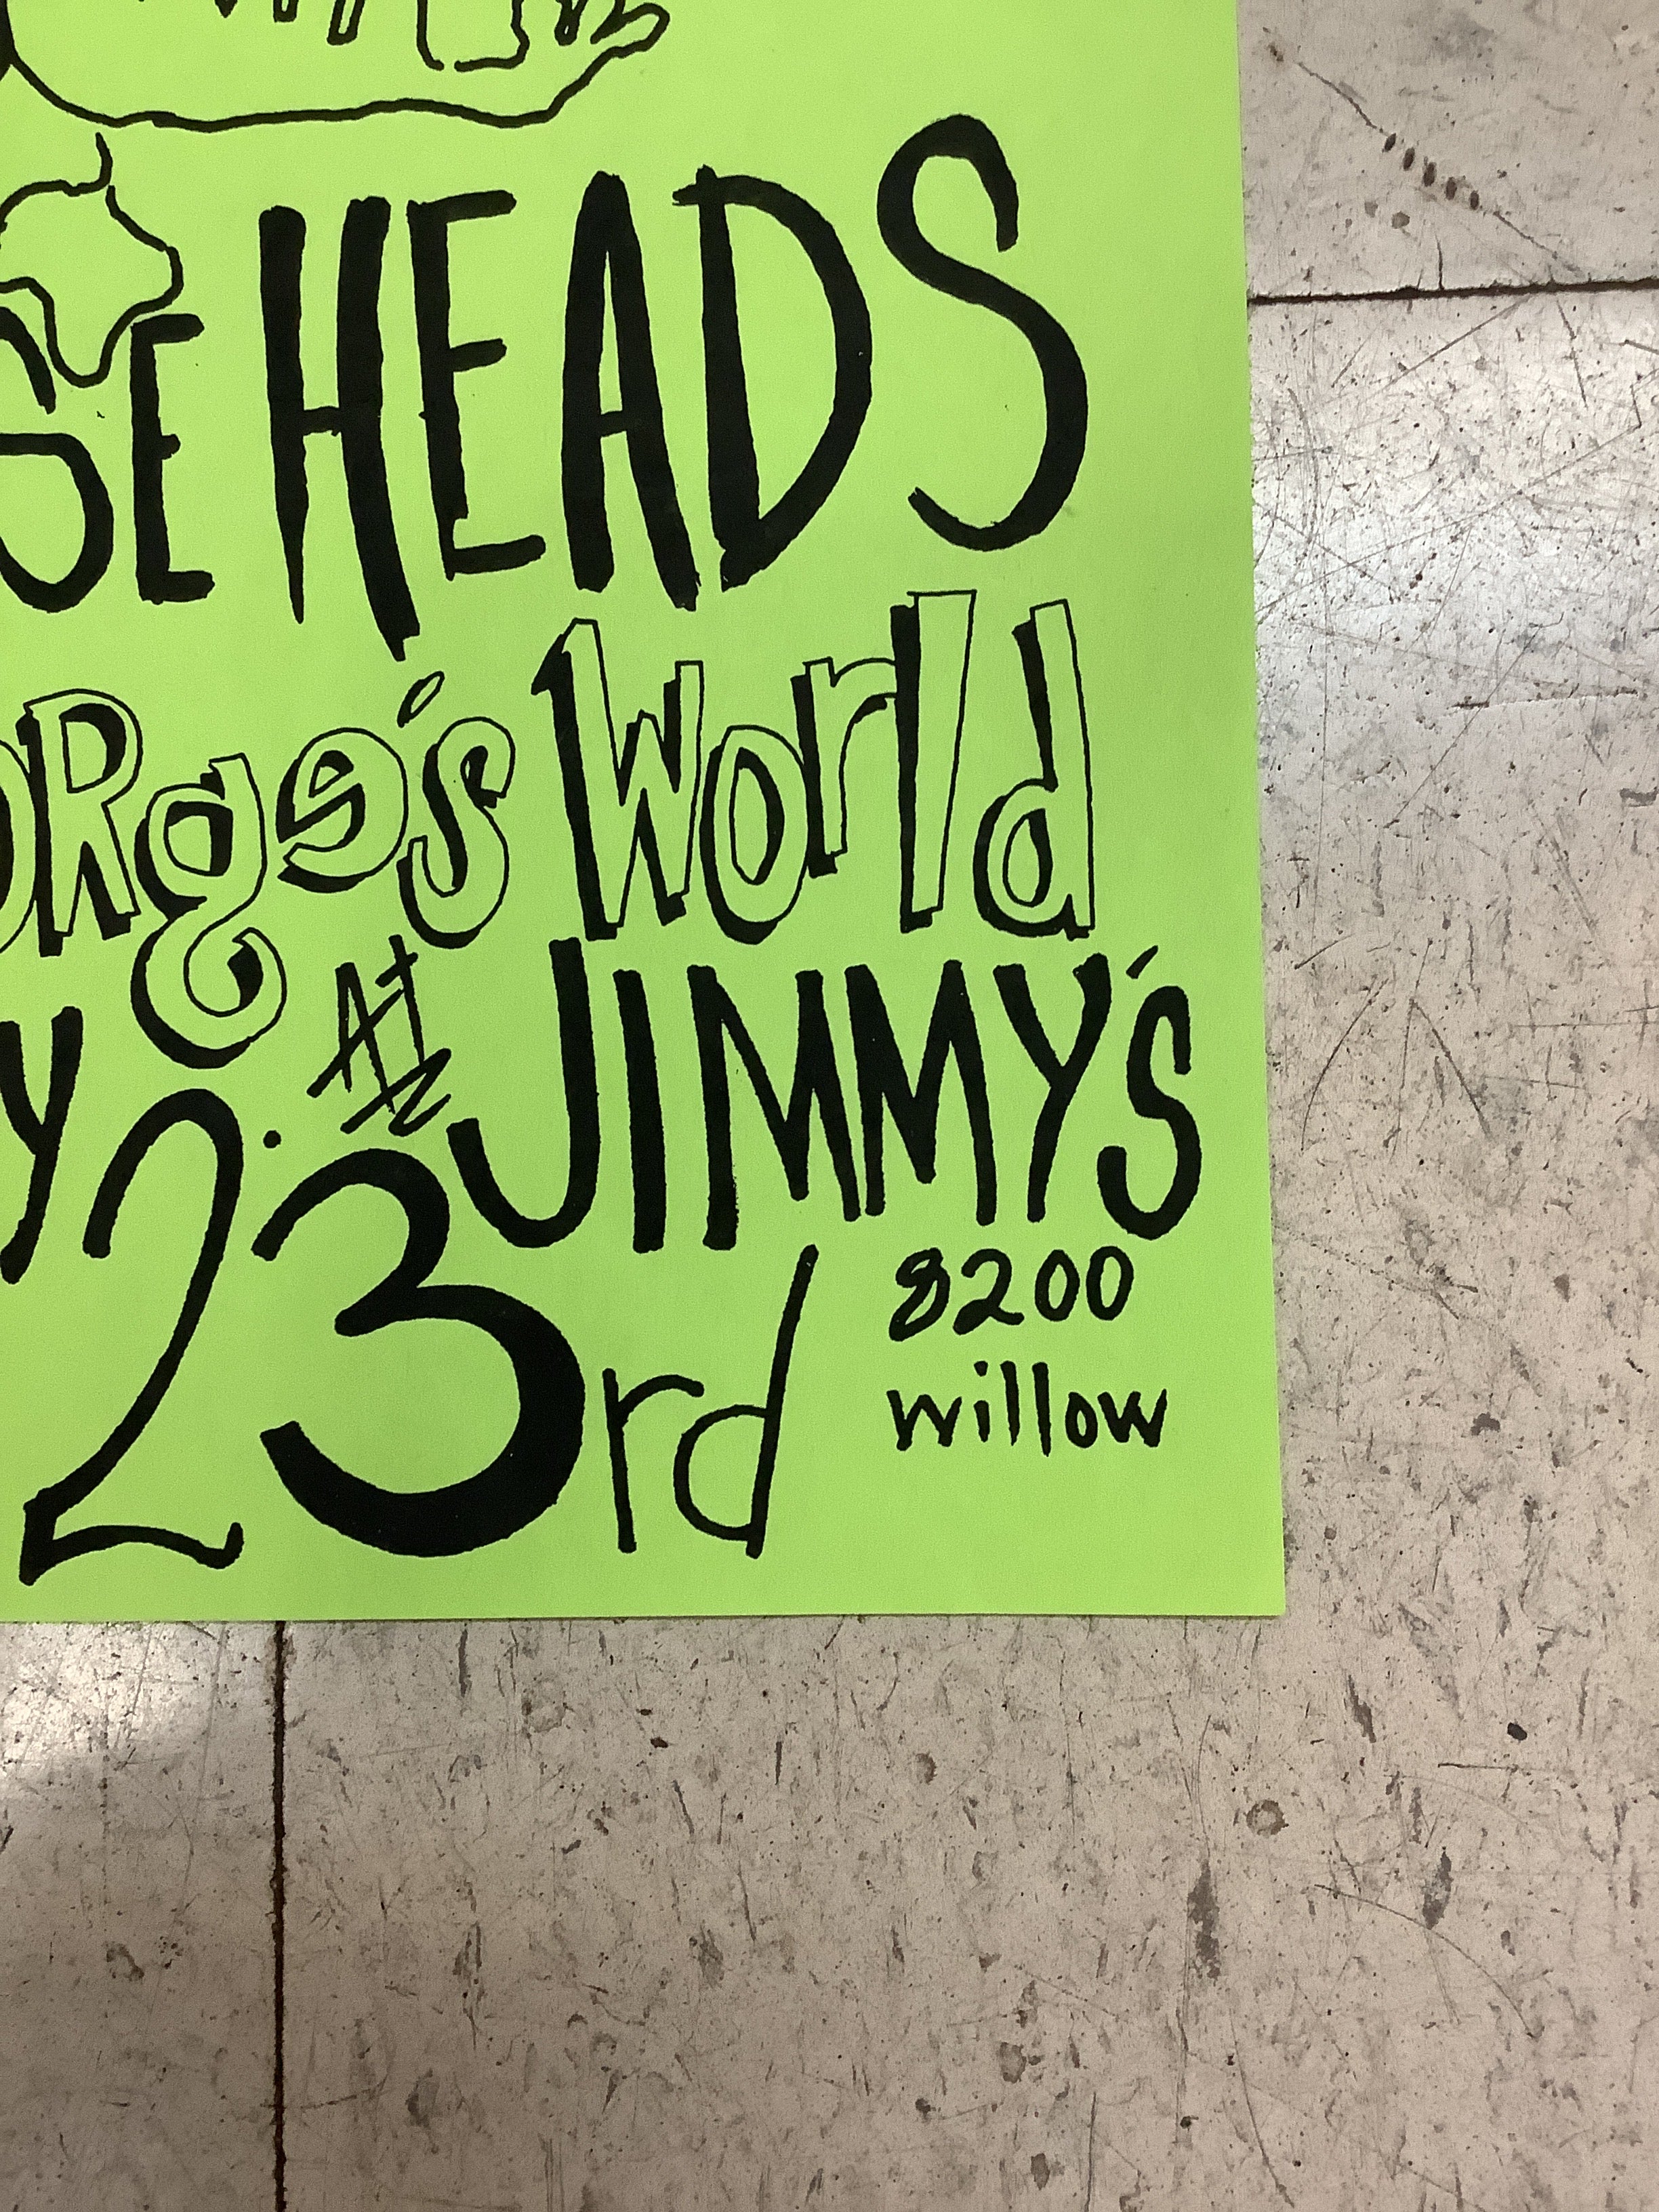 SE HEADS
orge's World
y AT JIMMY'S
23rd
8200
willow